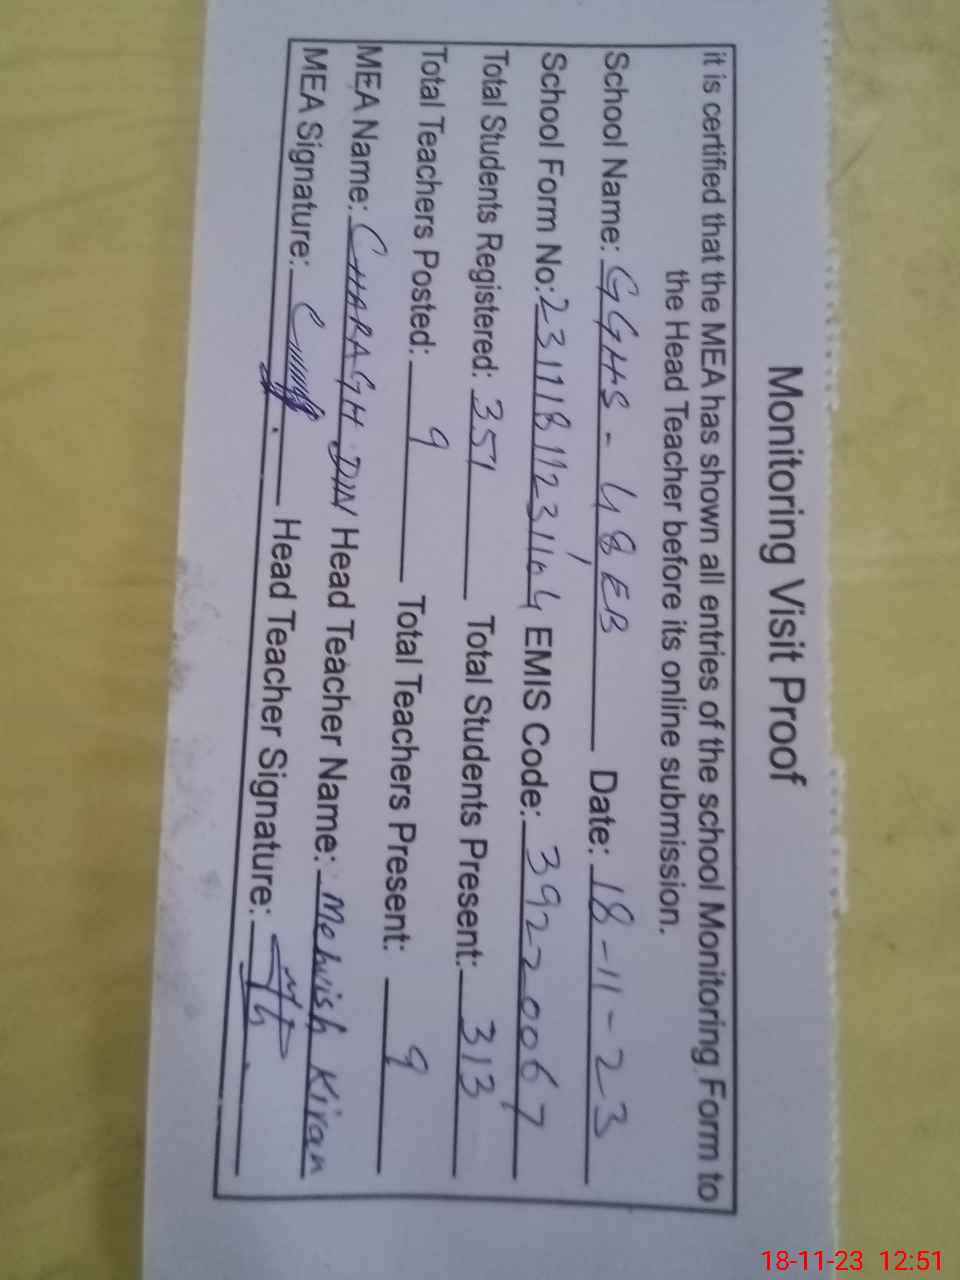 Monitoring Visit Proof
it is certified that the MEA has shown all entries of the school Monitoring Form to
the Head Teacher before its online submission.
School Name: GGHS - 48 EB Date: 18-11-23
School Form No: 23111811231104 EMIS Code: 39220067
Total Students Registered: 351 Total Students Present: 313
Total Teachers Posted: 9 Total Teachers Present: 9
MEA Name: CHARAGH DIN Head Teacher Name: Mehwish Kiran
MEA Signature: Head Teacher Signature:
18-11-23 12:51